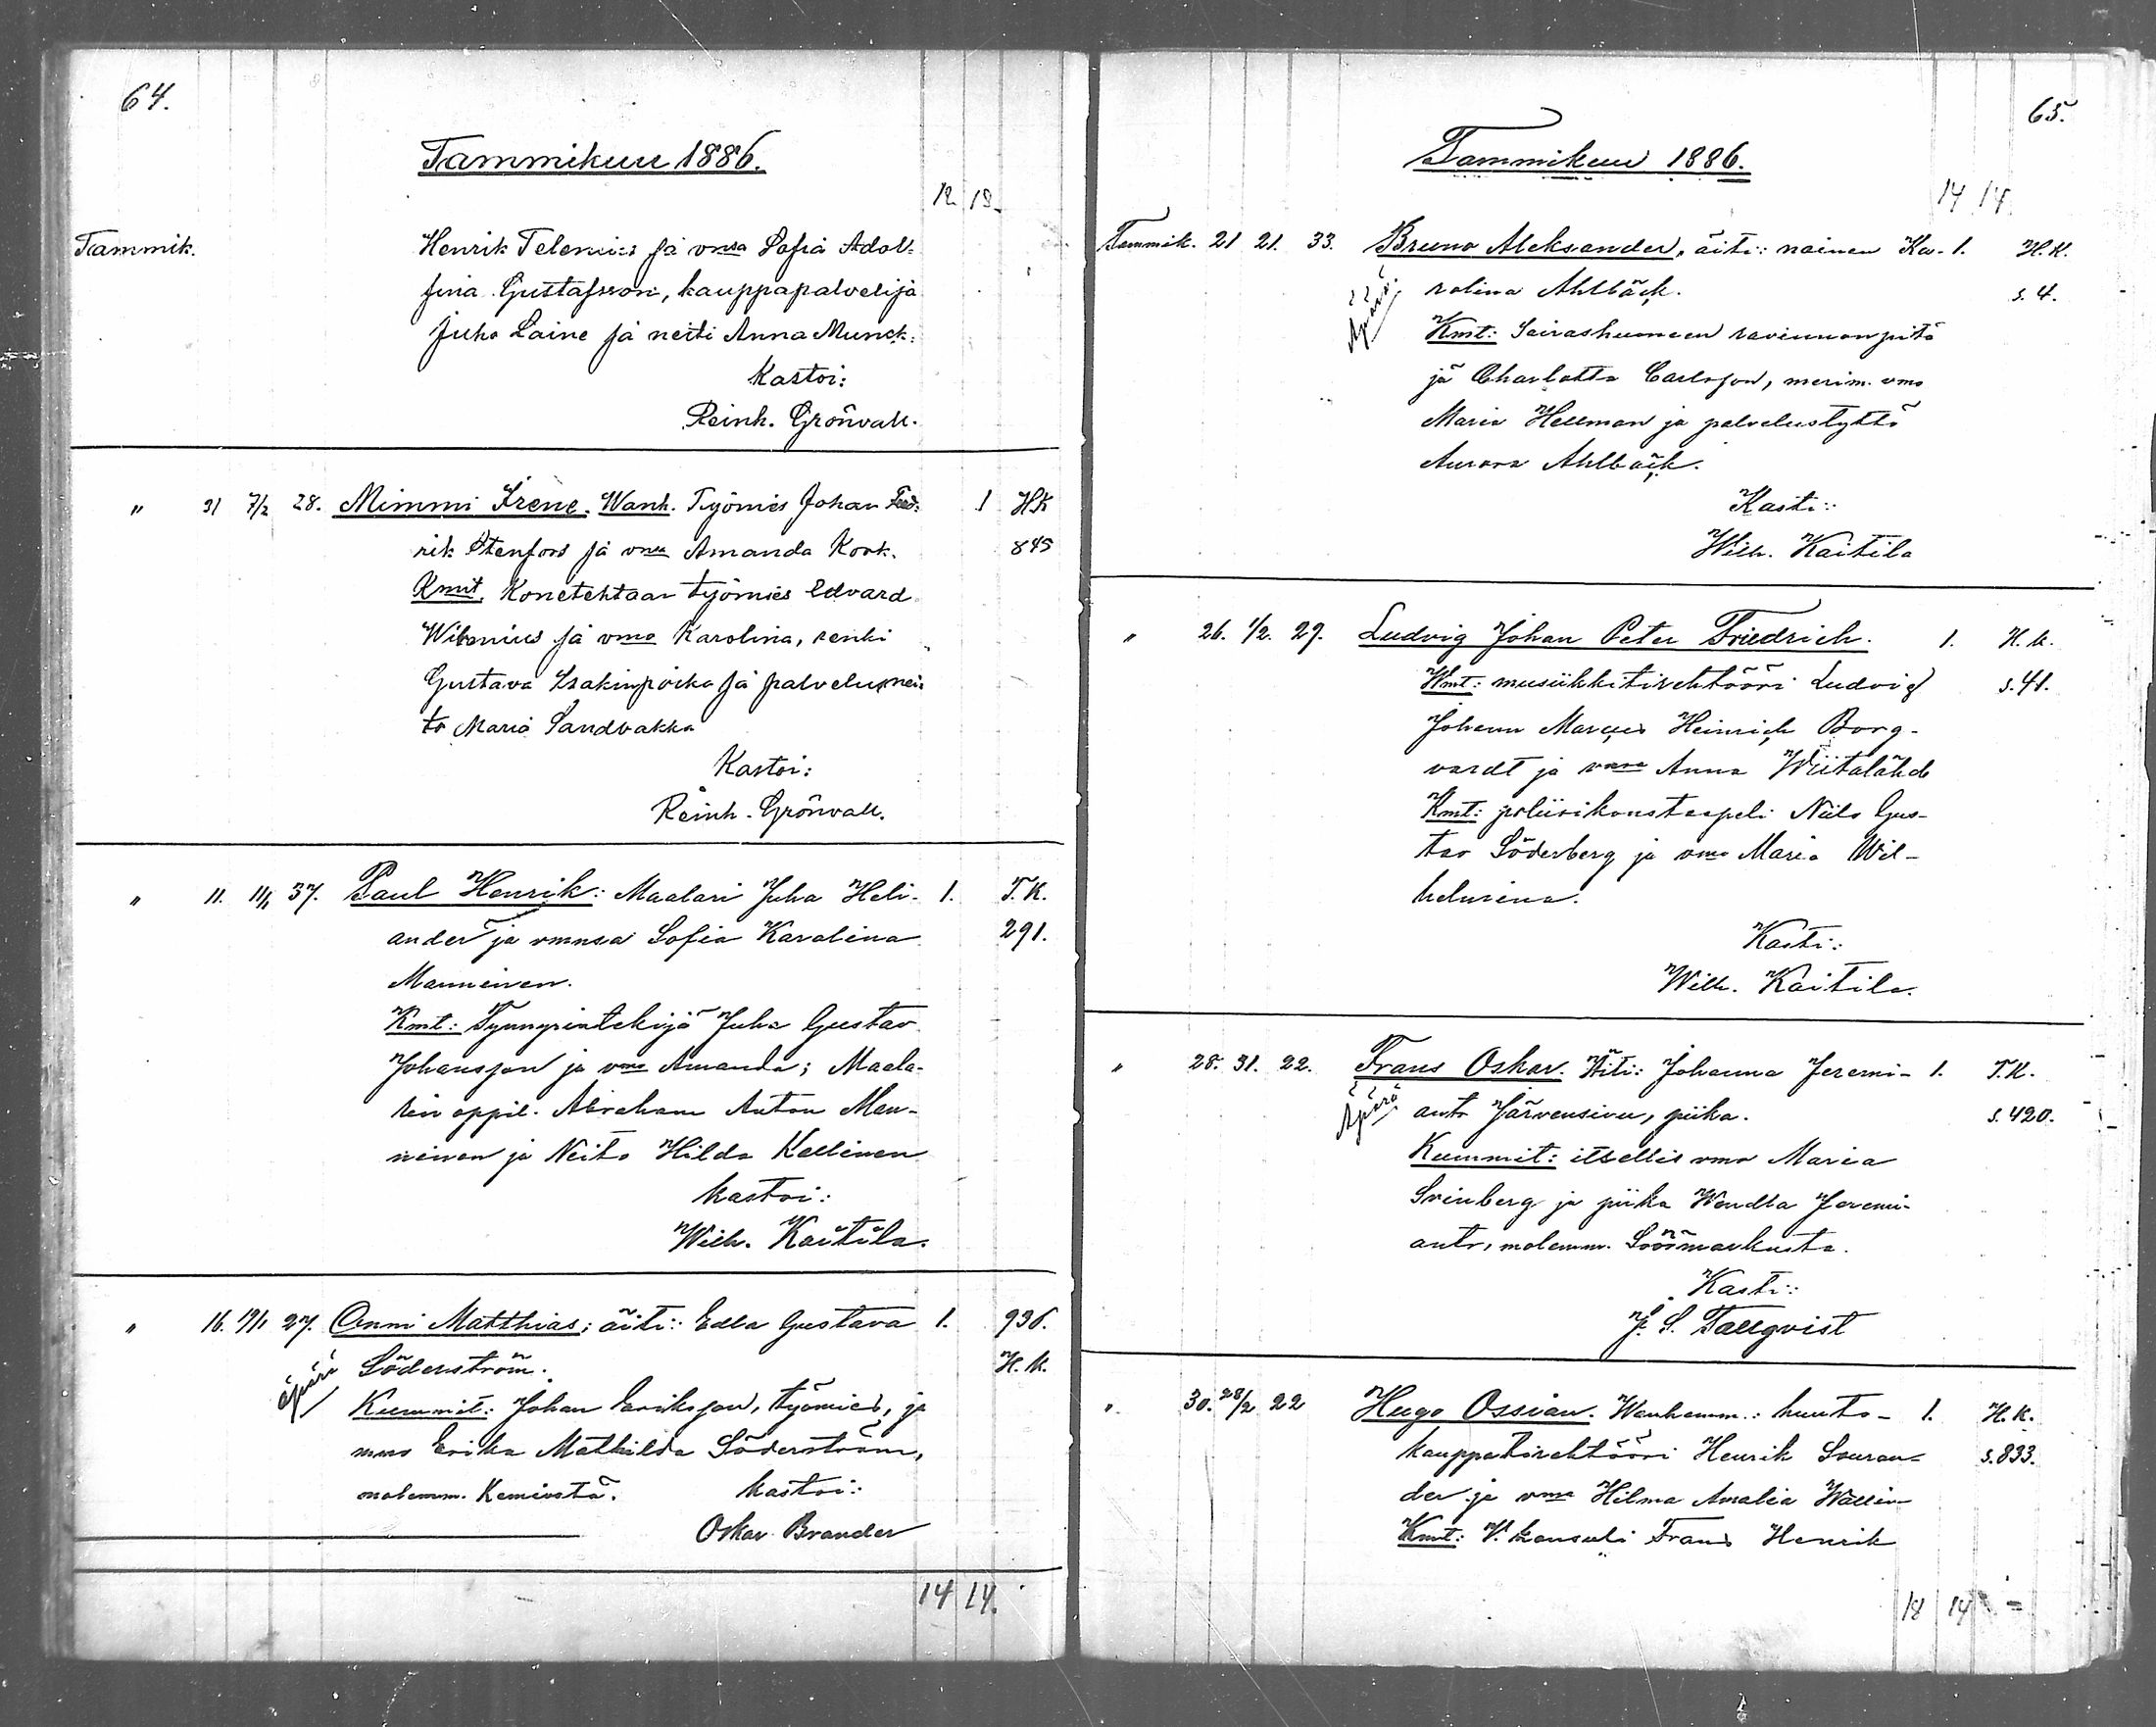 64.
Tammikuu 1886.
12 13
Tammik. Henrik Telenius ja vmsa Sofia Adol-
fina Gustafsson, kauppapalvelija
Juho Laine ja neiti Anna Munck.
Kastoi:
Reinh. Grönvall.
" 31 7/2 28. Mimmi Irene. Wanh. Työmies Johan Fred- 1 H.K
rik Stenfors ja vmsa Amanda Kook. 845
Kmit. Konetehtaan työmies Edvard
Wilenius ja vmo Karolina, renki
Gustava Isakinpoika ja palvelusnei-
to Maria Sandvakka
Kastoi:
Reinh. Grönvall.
" 11. 11/1 37. Paul Henrik: Maalari Juha Heli- 1. T.K.
ander ja vmnsa Sofia Karolina 291.
Manninen.
Kmt: Tynnyrintekijä Juha Gustav
Johansson ja vmo Amanda; Maala-
rin oppil. Abraham Anton Man-
ninen ja Neito Hilda Kallinen
kastoi:
Wilh. Kaitila.
" 16. 19/1 27. Onni Matthias; äiti: Edla Gustava 1. 936.
äpärä Söderström. H.K.
Kummit: Johan Eriksson, työmies, ja
mms Erika Mathilda Söderström,
molemm. Kemistä. kastoi:
Oskar Brander
14 14.
65.
Tammikuu 1886.
14 14
Tammik. 21 21. 33. Bruno Aleksander, äiti: nainen Ka- 1. H.K.
Äpärä. rolina Ahlbäck. s. 4.
Kmt: Sairashuoneen ravinnonpitä
jä Charlotta Carlsson, merim. vmo
Maria Hellman ja palvelustyttö
Aurora Ahlbäck.
Kasti:
Wilh. Kaitila
" 26. 1/2. 29. Ludvig Johan Peter Friedrich. 1. H.K.
Wmt: musiikkitirehtööri Ludvig s. 41.
Johann Marcus Heinrich Borg-
vardt ja vmsa Anna Wiitalähde
Kmt: poliisikonstaapeli Niilo Gus-
tav Söderberg ja vmo Maria Wil-
helmina.
Kasti:
Wilh. Kaitila.
" 28. 31. 22. Frans Oskar. Äiti: Johanna Jeremi- 1. T.K.
Äpärä antr Järvensivu, piika. s. 420.
Kummit: itsellis vmo Maria
Svinberg ja piika Wendla Jeremi-
antr, molemm. Söörmarkusta.
Kasti:
J. S. Tallqvist
" 30. 28/2 22 Hugo Ossian. Wanhemm.: huuto- 1. H.K.
kauppatirehtööri Henrik Souran- s. 833.
der ja vmsa Hilma Amalia Wallin
Kmt: V. konsuli Frans Henrik
18 14